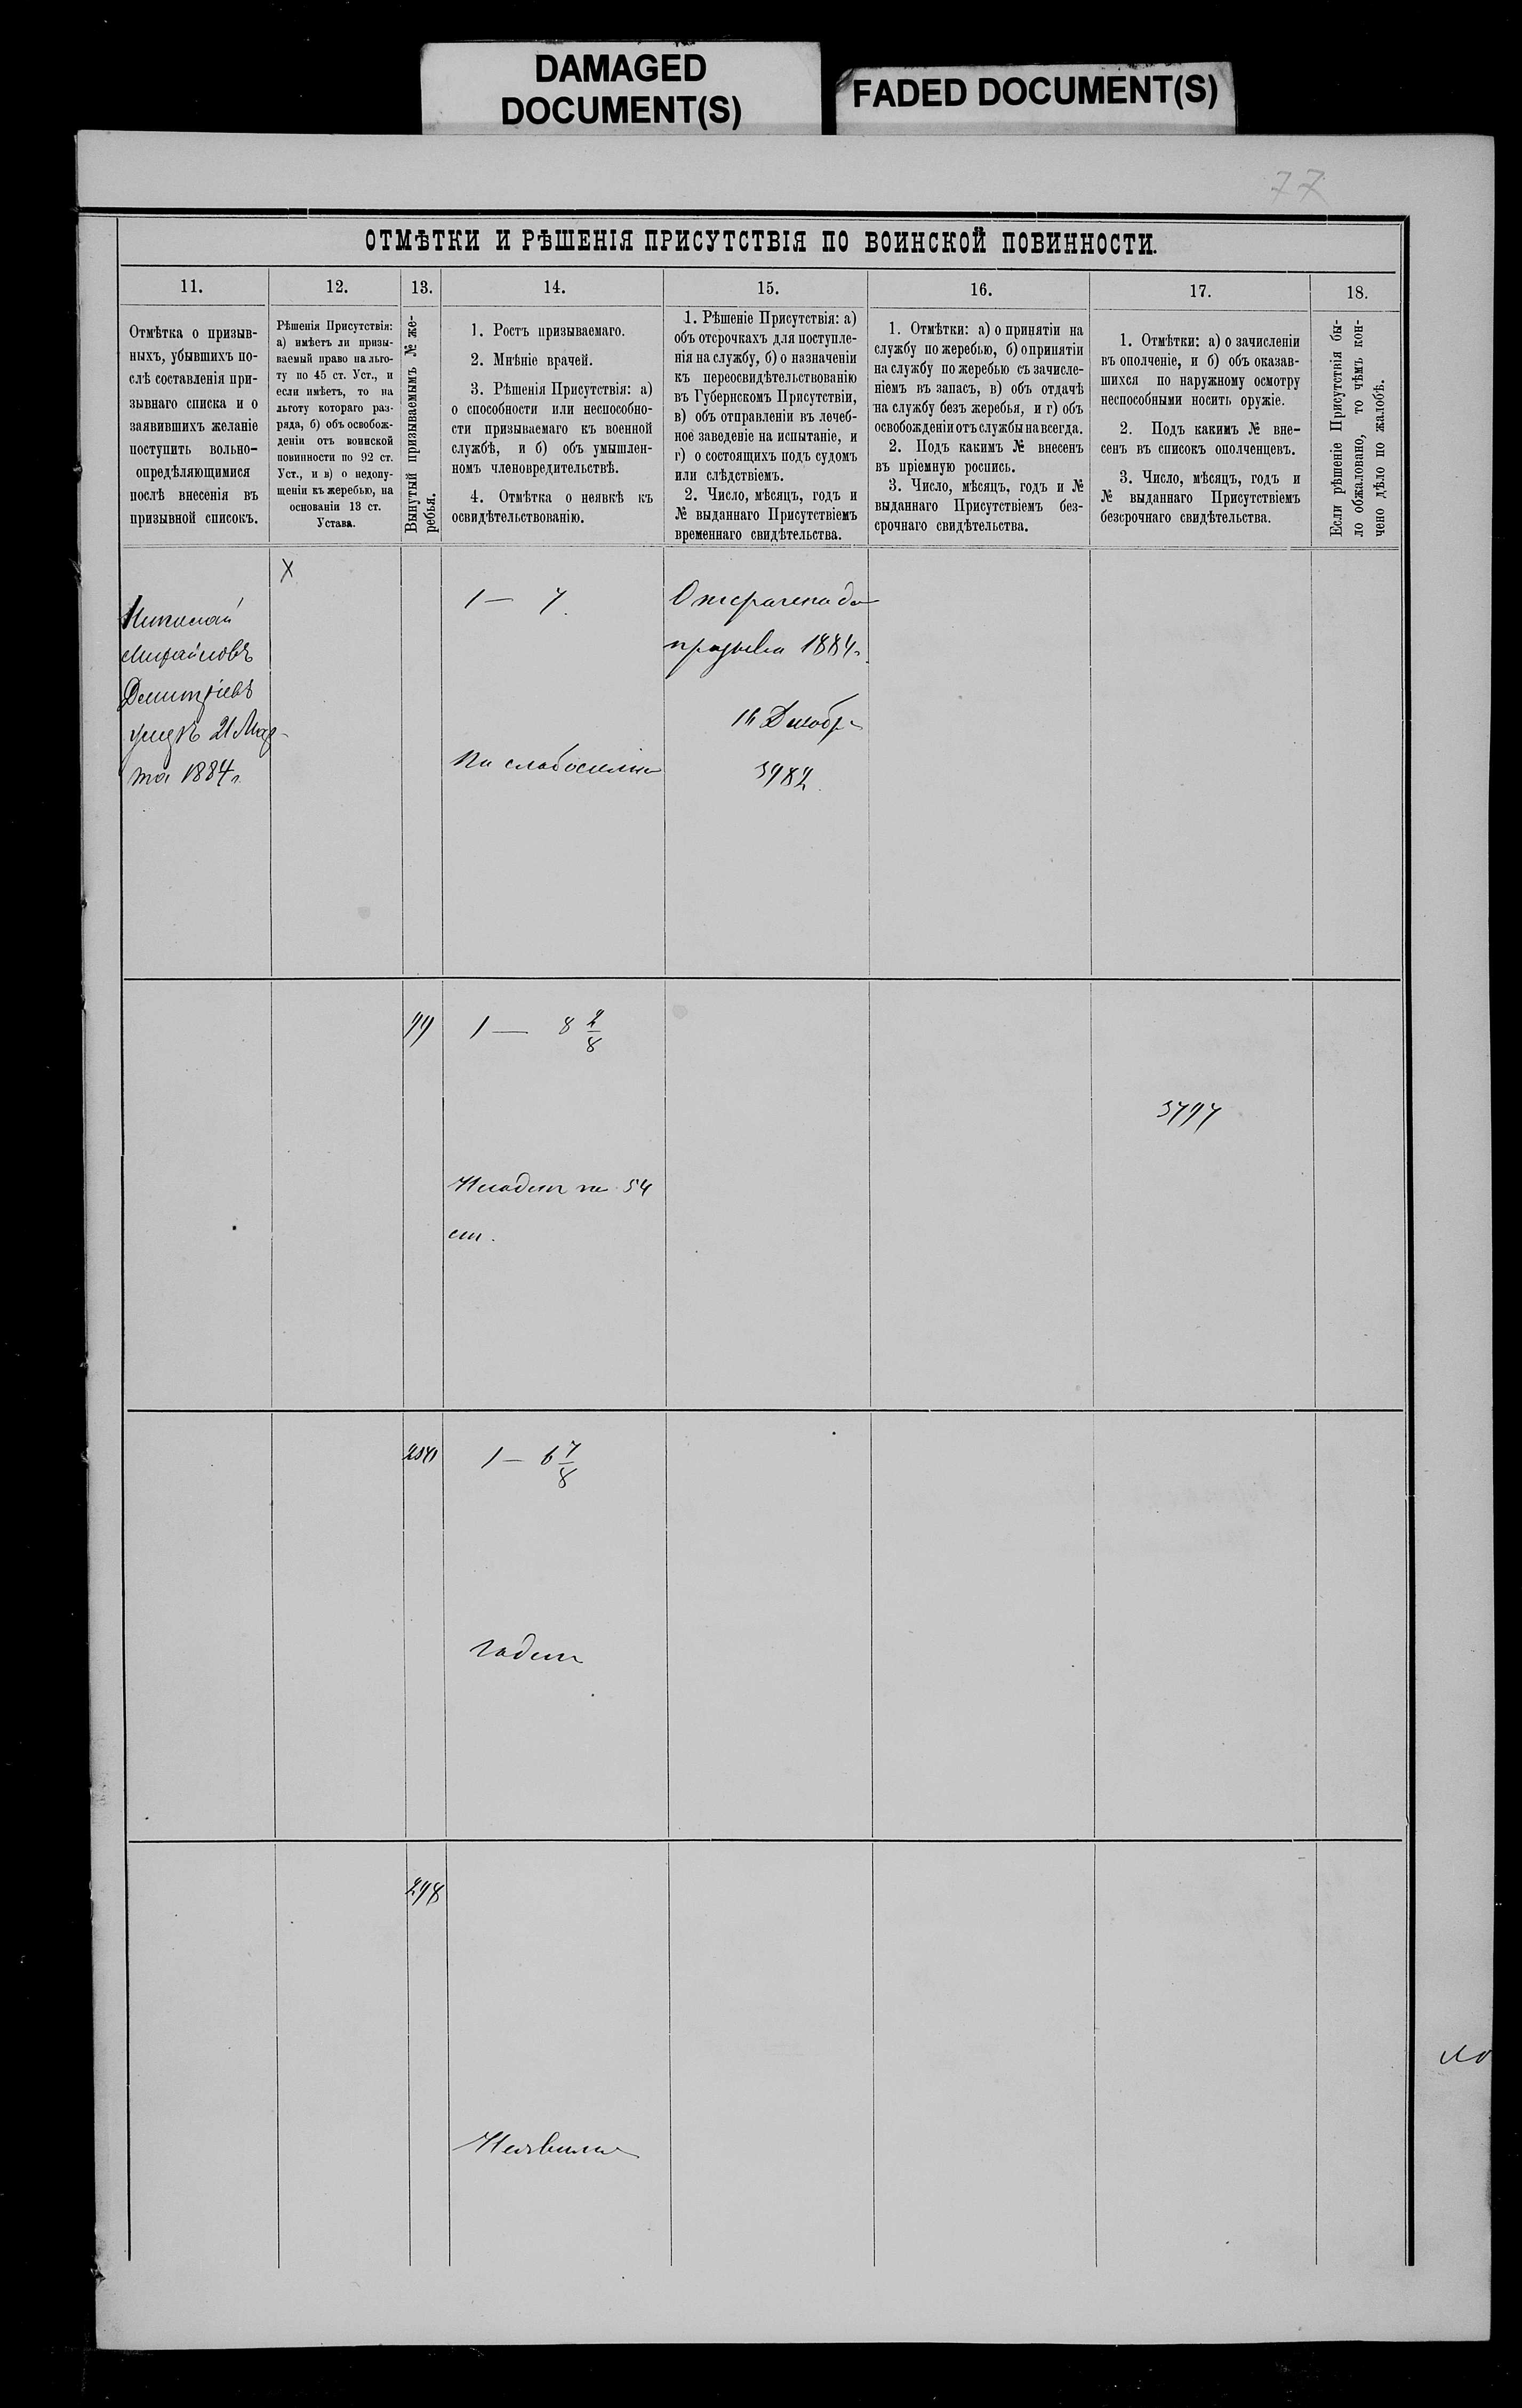 DAMAGED
DOCUMENT(S)
FADED DOCUMENT(S)
77
ОТМѢТКИ И РѢШЕНІЯ ПРИСУТСТВІЯ ПО ВОИНСКОЙ ПОВИННОСТИ.
11.
Отмѣтка о призыв-
ныхъ, убывшихъ по-
слѣ составленія при-
зывнаго списка и о
заявившихъ желаніе
поступить вольно-
опредѣляющимися
послѣ внесенія въ
призывной списокъ.
12.
Рѣшенія Присутствія:
а) имѣетъ ли призы-
ваемый право на льго-
ту по 45 ст. Уст., и
если имѣетъ, то на
льготу котораго раз-
ряда, б) объ освобож-
деніи отъ воинской
повинности по 92 ст.
Уст., и в) о недопу-
щеніи къ жеребью, на
основаніи 13 ст.
Устава.
13.
Вынутый призываемымъ № же-
ребья.
14.
1. Ростъ призываемаго.
2. Мнѣніе врачей.
3. Рѣшенія Присутствія: а)
о способности или неспособно-
сти призываемаго къ военной
службѣ, и б) объ умышлен-
номъ членовредительствѣ.
4. Отмѣтка о неявкѣ къ
освидѣтельствованію.
15.
1. Рѣшеніе Присутствія: а)
объ отсрочкахъ для поступле-
нія на службу, б) о назначеніи
къ переосвидѣтельствованію
въ Губернскомъ Присутствіи,
в) объ отправленіи въ лечеб-
ное заведеніе на испытаніе, и
г) о состоящихъ подъ судомъ
или слѣдствіемъ.
2. Число, мѣсяцъ, годъ и
№ выданнаго Присутствіемъ
временнаго свидѣтельства.
16.
1. Отмѣтки: а) о принятіи на
службу по жеребью, б) о принятіи
на службу по жеребью съ зачисле-
ніемъ въ запасъ, в) объ отдачѣ
на службу безъ жеребья, и г) объ
освобожденіи отъ службы навсегда.
2. Подъ какимъ № внесенъ
въ пріемную роспись.
3. Число, мѣсяцъ, годъ и №
выданнаго Присутствіемъ без-
срочнаго свидѣтельства.
17.
1. Отмѣтки: а) о зачисленіи
въ ополченіе, и б) объ оказав-
шихся по наружному осмотру
неспособными носить оружіе.
2. Подъ какимъ № вне-
сенъ въ списокъ ополченцевъ.
3. Число, мѣсяцъ, годъ и
№ выданнаго Присутствіемъ
безсрочнаго свидѣтельства.
18.
Если рѣшеніе Присутствія бы-
ло обжаловано, то чѣмъ кон-
чено дѣло по жалобѣ.
Николай
Михайловъ
Дмитріевъ
21 Мар-
та 1884 г.
X
1 — 7.
По слабосилію
Отсрочена до
призыва 1884 г.
16 Декабр
1 — 8 2/8
Негоденъ по 54
ст.
1 — 6 7/8
Годенъ
298
Неявился